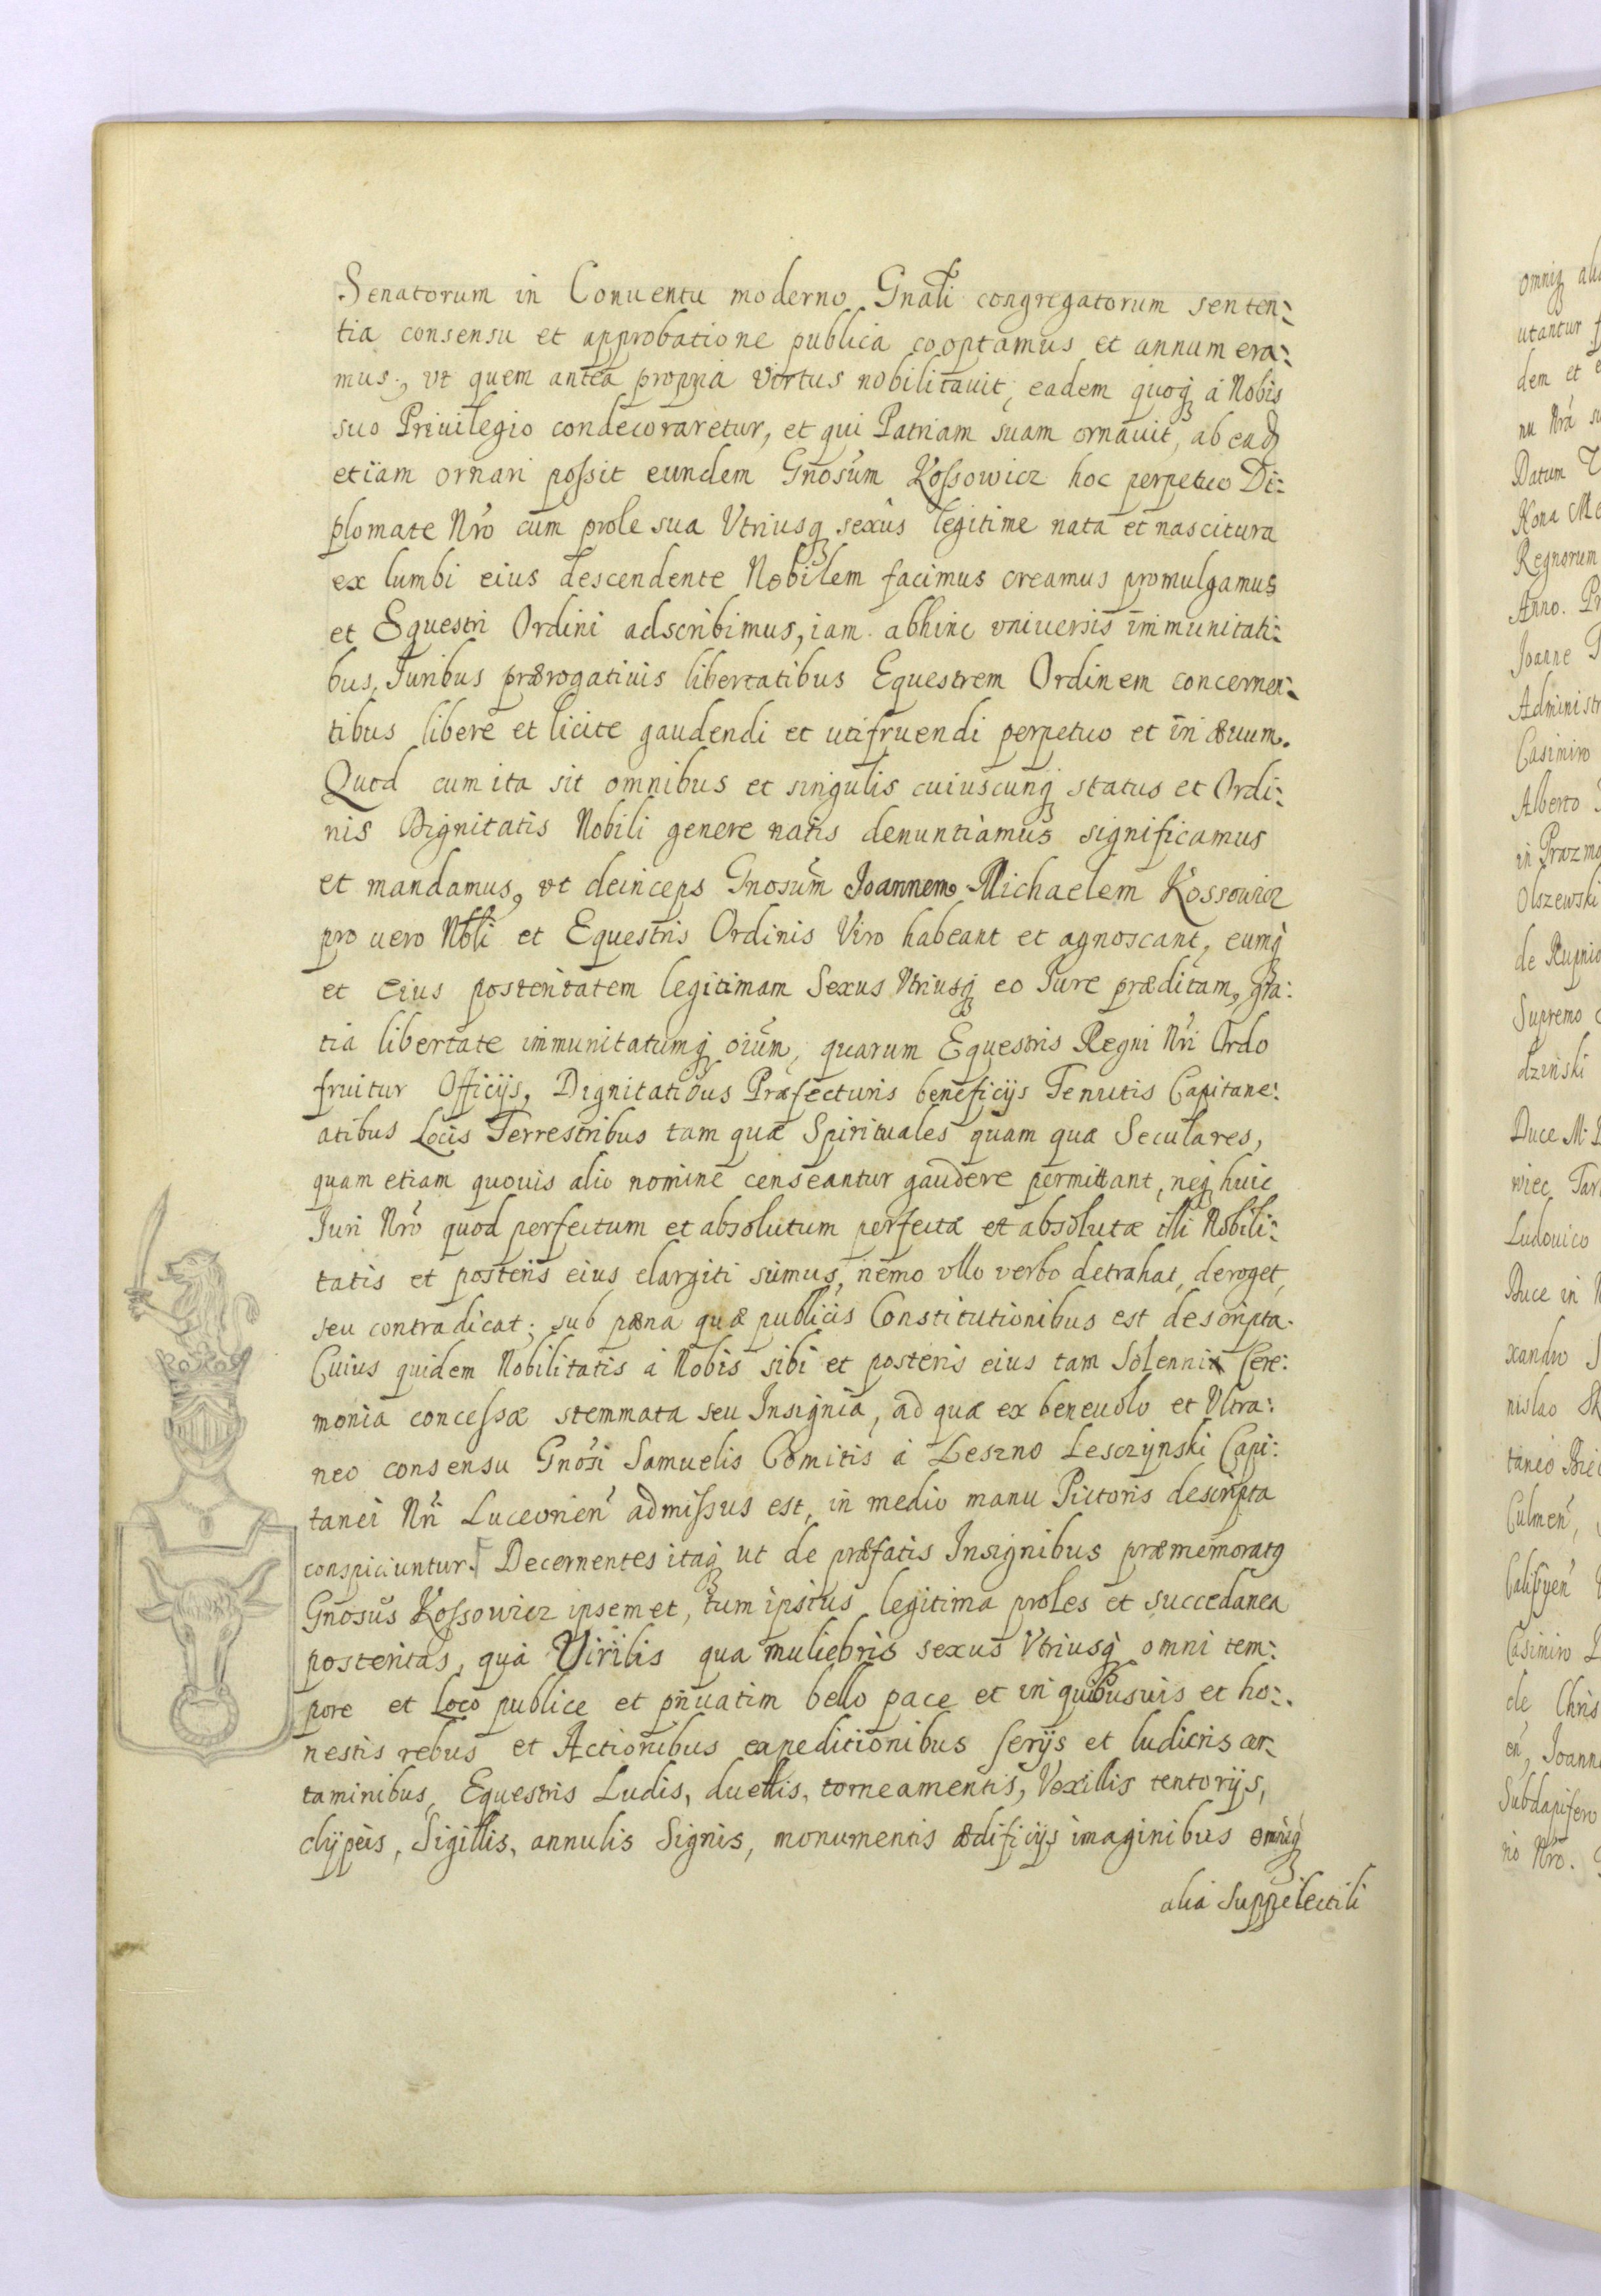 Senatorum in Conuentu moderno Gnãli congregatorum senten:
tia consensu et approbatione publica cooptamus et annumera:
mus, vt quem antea propria virtus nobilitauit, eadem quoq́ a Nobis
suo Priuilegio condecoraretur, et qui Patriam suam ornauit, ab ead
etiam ornari possit eundem Gnosum Kossowicz hoc perpetuo Di:
plomate Nrõ cum prole sua Vtriusq sexus legitime nata et nascitura
ex lumbi eius descendente Nobilem facimus creamus promulgamus
et Equestri Ordini adscribimus, iam abhinc vniuersis immunitati:
bus, Iuribus prærogatiuis libertatibus Equestrem Ordinem concernen:
tibus libere et licite gaudendi et utifruendi perpetuo et in æuum.
Quod cum ita sit omnibus et singulis cuiuscunq status et Ordi:
nis Dignitatis Nobili genere natis denuntiamus significamus
et mandamus, vt deinceps Gnosum Joannem Michaelem Kossowicz
pro uero Nbli et Equestris Ordinis Viro habeant et agnoscant, eumq
et eius posteritatem legitimam Sexus Vtriusq eo Jure præditam, gra:
tia libertate immunitatumq oium, quarum Equestris Regni Nri Ordo
fruitur Officijs, Dignitatibus Præfecturis beneficijs Tenutis Capitane:
atibus Locis Terrestribus tam quæ Spirituales quam quæ Seculares,
quam etiam quouis alio nomine censeantur gaudere permittant, neq huic
Juri Nrõ quod perfectum et absolutum perfectæ et absolutæ illi Nobili:
tatis et posteris eius elargiti sumus, nemo vllo verbo detrahat, deroget,
seu contradicat; sub pæna quæ publicis Constitutionibus est descripta.
Cuius quidem Nobilitatis a Nobis sibi et posteris eius tam Solenni Cere:
monia concessæ stemmata seu Insignia, ad quæ ex beneuolo et Vltra:
neo consensu Gnosi Samuelis Comitis a Leszno Lesczynski Capi:
tanei Nri Luceorien admissus est, in medio manu Pictoris descripta
conspiciuntur. Decernentes itaq ut de præfatis Insignibus præmemoratq
Gnosus Kossowicz ipsemet, tum ipsius legitima proles et succedanea
posteritas, qua Virilis qua muliebris sexus Vtriusq omni tem:
pore et Loco publice et priuatim bello pace et in quibusuis et ho:
nestis rebus et Actionibus expeditionibus serijs et ludicris cer:
taminibus, Equestris Ludis, duellis, torneamentis, Vexillis tentorijs,
clypeis, Sigillis, annulis Signis, monumentis ædificijs imaginibus omniq
alia Suppelectili
omniq
utantur
dem et
nu Nrã
Datum
Regnorum
Anno.
Joanne
Casimiro
Alberto
Olszewski
Supremo
Duce M.
Ludouico
Duce in
xandro
nislao
Culmen,
Casimiro
de Chris
Subdapifero
no Nrõ.